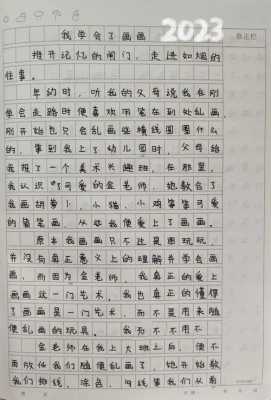 2023
我学会了画画
推开记忆的闸门，走进如烟的
往事。
年幼时，听我的父母说我在刚
学会走路时便喜欢用笔在到处乱画。
刚开始也只会乱画些横线圆圈什么
的，等到我上了幼儿园时，父母给
我报了一个美术兴趣班，在那里，
我认识了可爱的金老师，她教会了
我画胡萝卜、小猫、小鸡等等可爱
的简笔画，从此我便爱上了画画。
原本我画画只不过是图玩玩，
并没有真正意义上的理解并学会画
画，而因为金老师，我真正的爱上
画画这一门艺术，我也真正的懂得
了画画是一门艺术，而不是用来随
便乱画的玩具。我为不不用不
金老师在我上大班之后，便不
再放任我们随便乱画了，她开始教
我们排线、涂色、勾线等我们从前